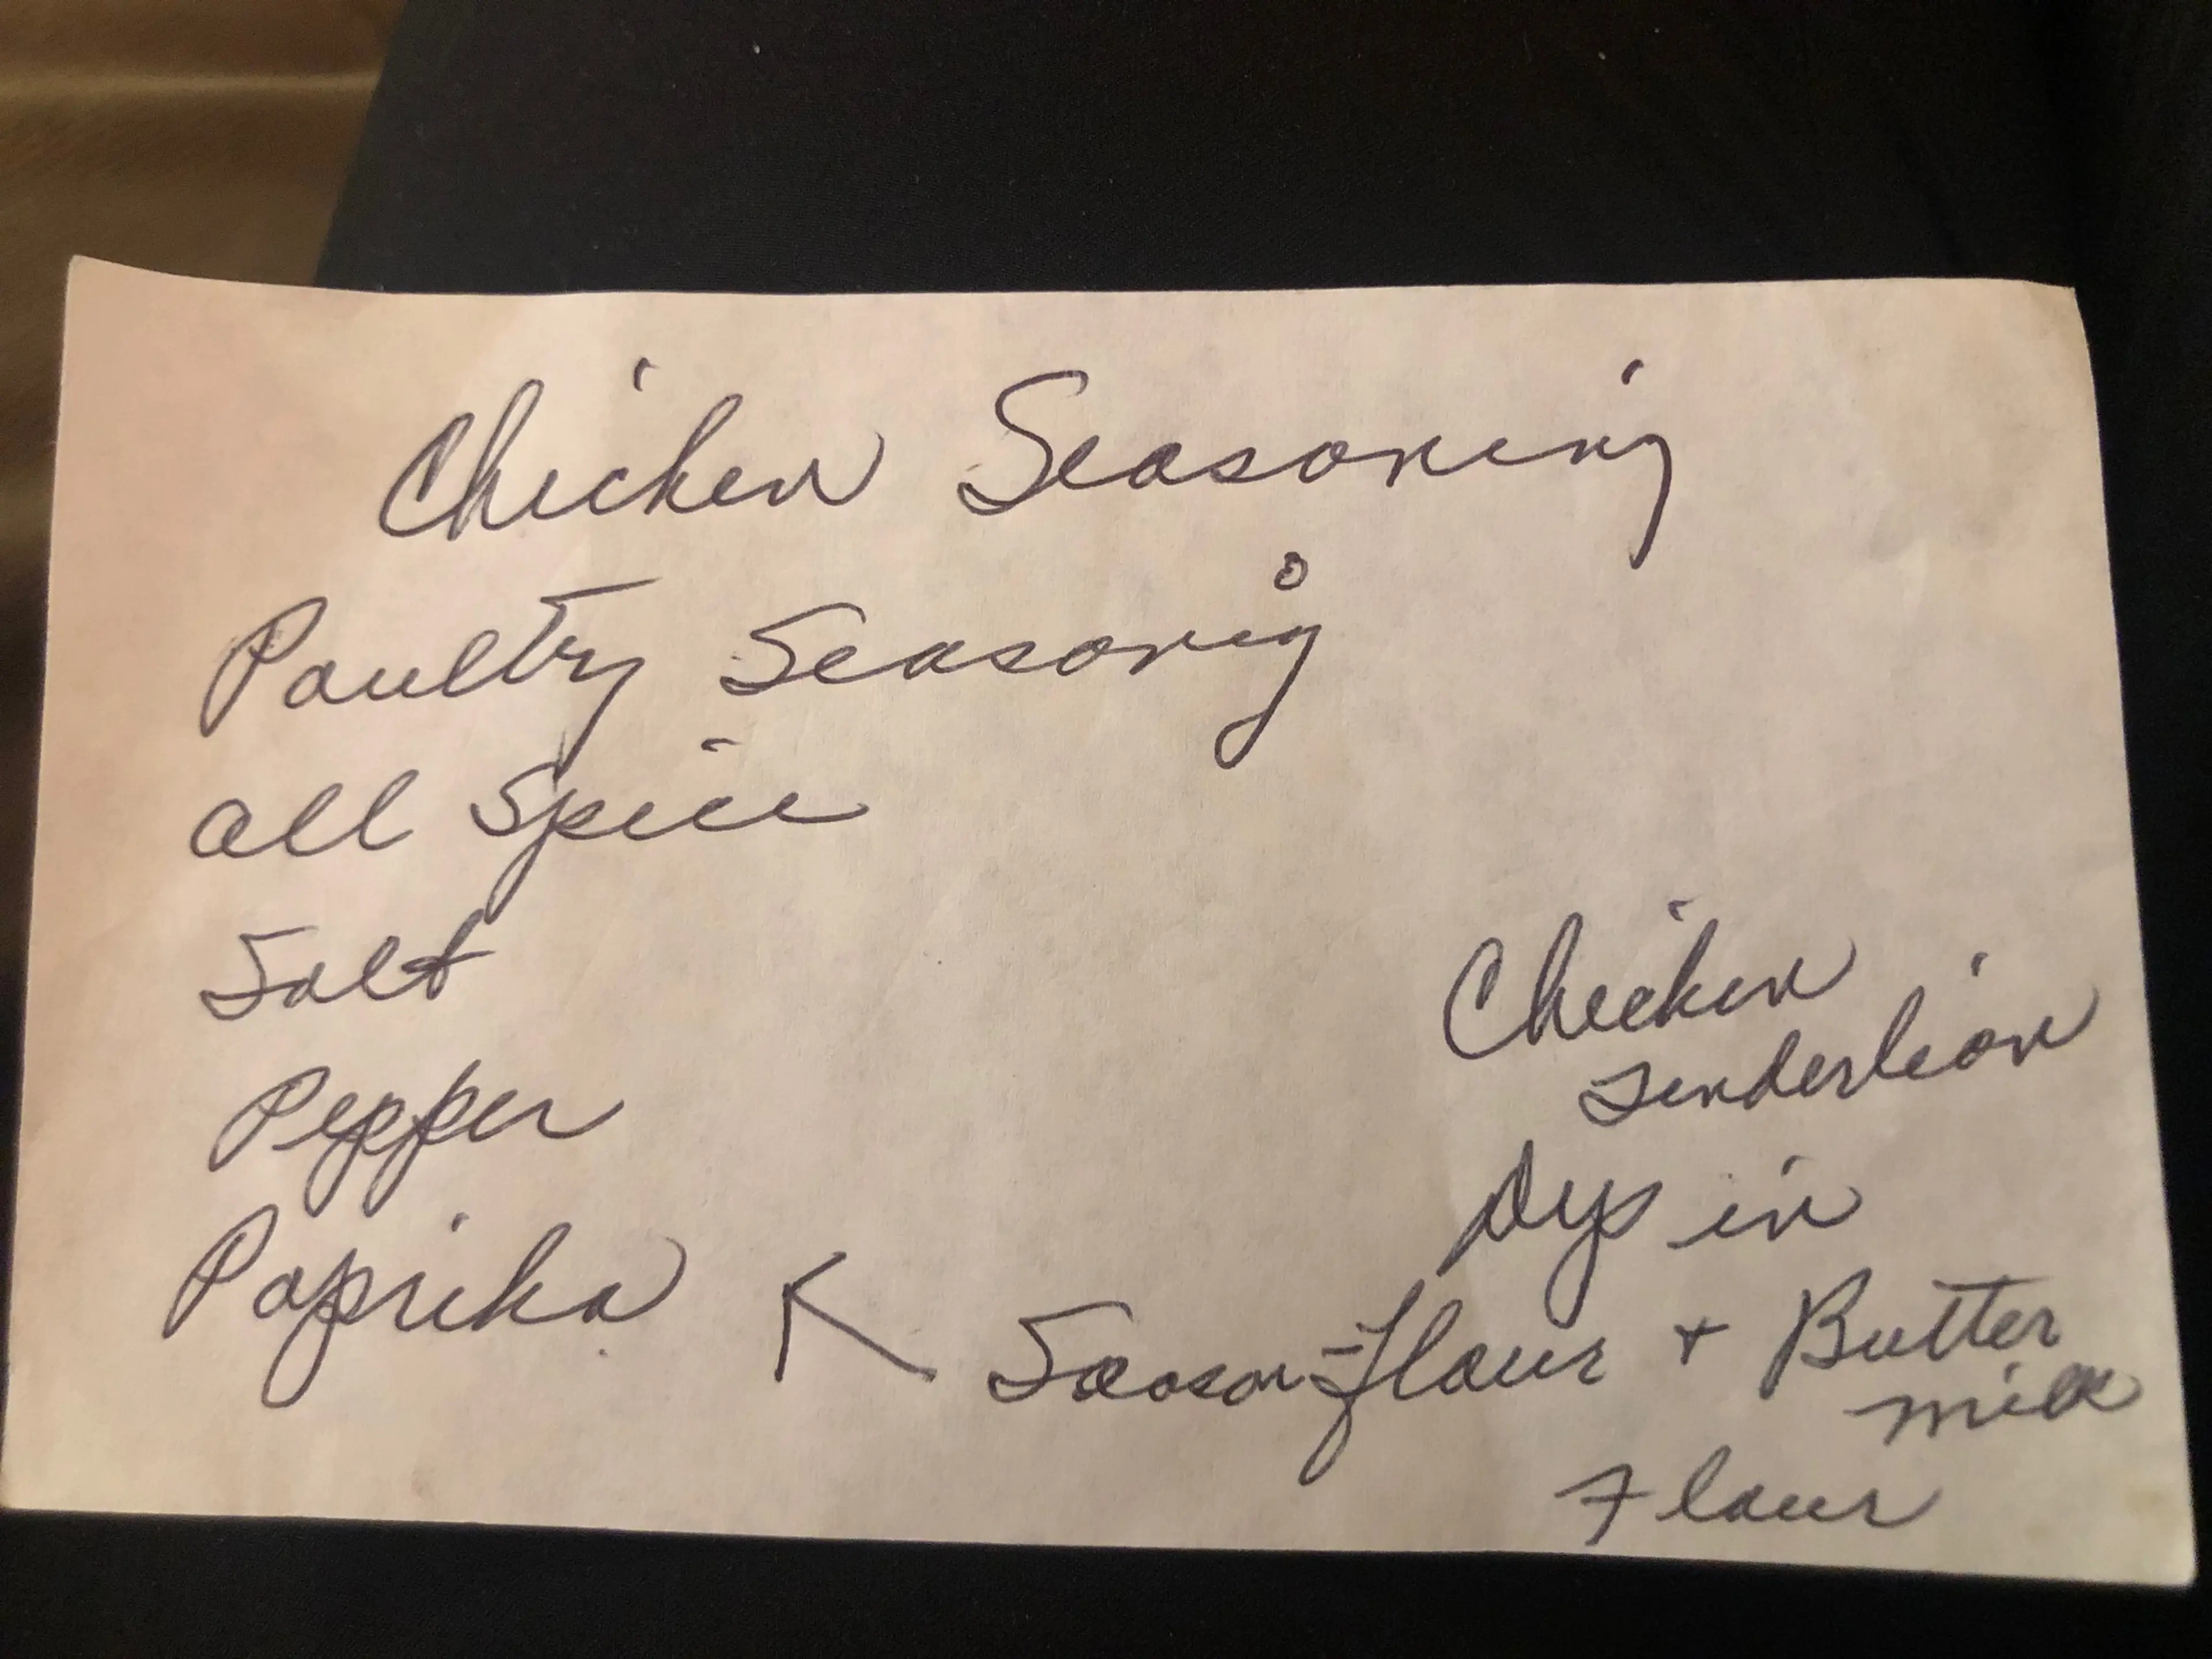 Chicken Seasoning
Poultry Seasonig
all Spice
Salt
Pepper
Paprika
Chicken
Tenderlion
Dip in
Season-flour + Butter
milk
Flour